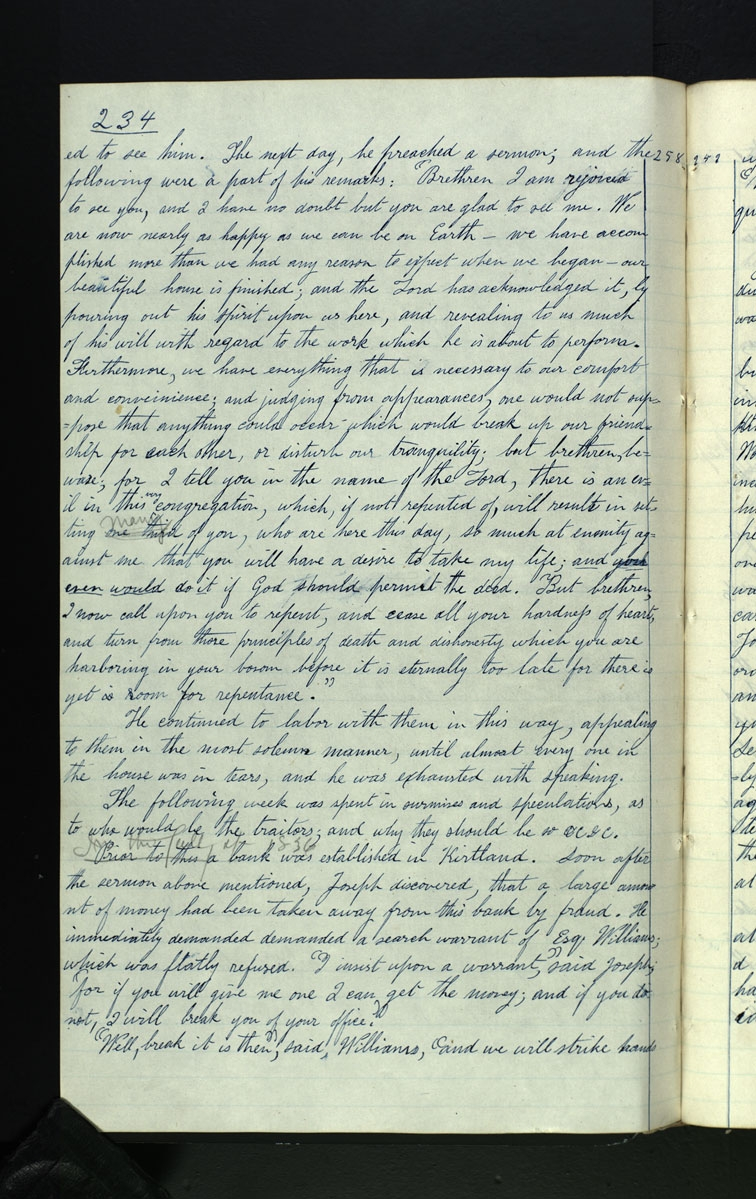 234
ed to see him. The next day, he preached a sermon; and the 258, 242
following were a part of his remarks: "Brethren I am rejoiced
to see you, and I have no doubt but you are glad to see me. We
are now nearly as happy as we can be on Earth — we have accom
plished more than we had any reason to expect when we began — our
beautiful house is finished; and the Lord has acknowledged it, by
pouring out his Spirit upon us here, and revealing to us much
of his will with regard to the work which he is about to perform.
Furthermore, we have everything that is necessary to our comfort
and conveinience; and judging from appearances, one would not sup=
=pose that anything could occur which would break up our friend=
ship for each other, or disturb our tranquility; but brethren, be=
ware; for I tell you in the name of the Lord, there is an ev=
il in this very congregation, which, if not repented of, will result in set=
many
ting one third of you, who are here this day, so much at enmity ag=
ainst me that you will have a desire to take my life; and you
even would do it if God should permit the deed. But brethren,
I now call upon you to repent, and cease all your hardness of heart,
and turn from those principles of death and dishonesty which you are
harboring in your bosom before it is eternally too late for there is
yet is room for repentance."
He continued to labor with them in this way, appealing
to them in the most solemn manner, until almost every one in
the house was in tears, and he was exhausted with speaking.
The following week was spent in surmises and speculations, as
to who would be the traitors; and why they should be so &c &c.
236
Prior to this a bank was established in Kirtland. Soon after
the sermon above mentioned, Joseph discovered, that a large amou
nt of money had been taken away from this bank by fraud. He
immediately demanded demanded a search warrant of Esq. Williams;
which was flatly refused. "I insist upon a warrant," said Joseph;
"for if you will give me one I can get the money; and if you do
not, I will break you of your office."
"Well, break it is then", said, Williams, "and we will strike hands